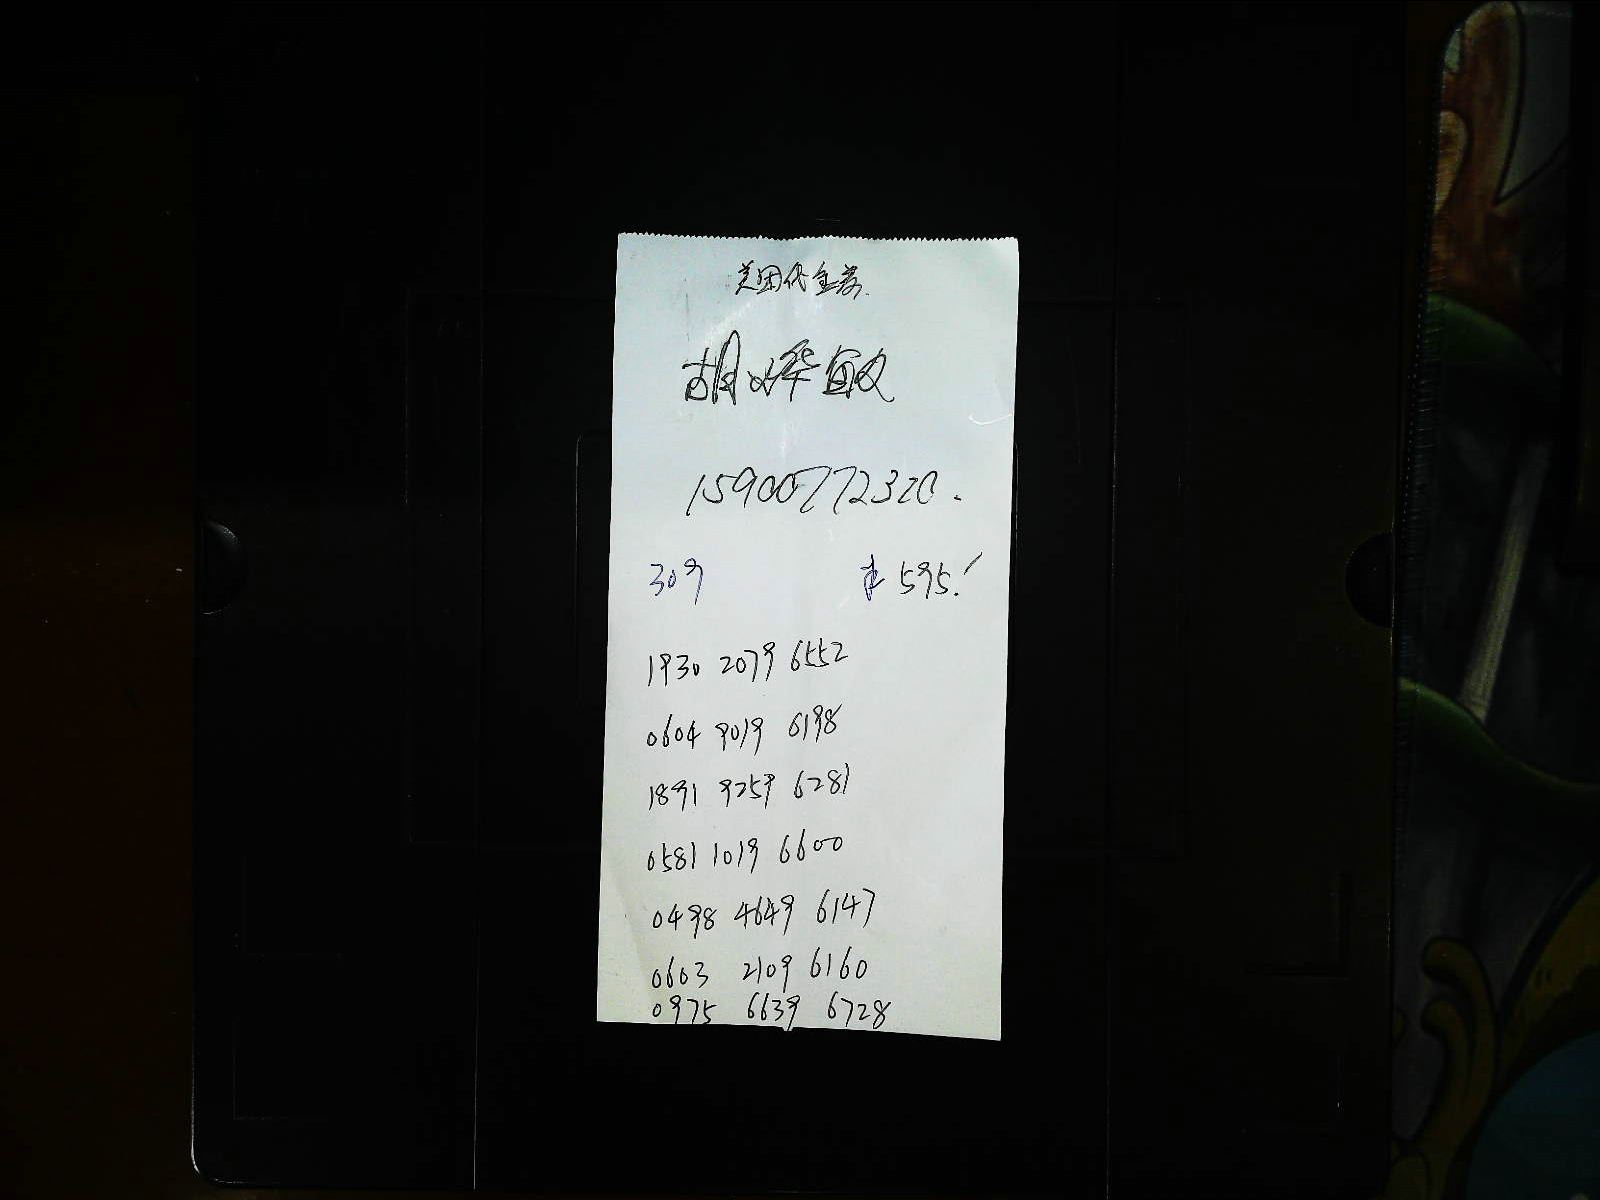 美团代金券.
胡烨敏
15900772320.
309 ¥ 595.
1930 2079 6552
0604 9019 6198
1891 9259 6281
0581 1019 6600
0498 4649 6147
0603 2109 6160
0975 6639 6728